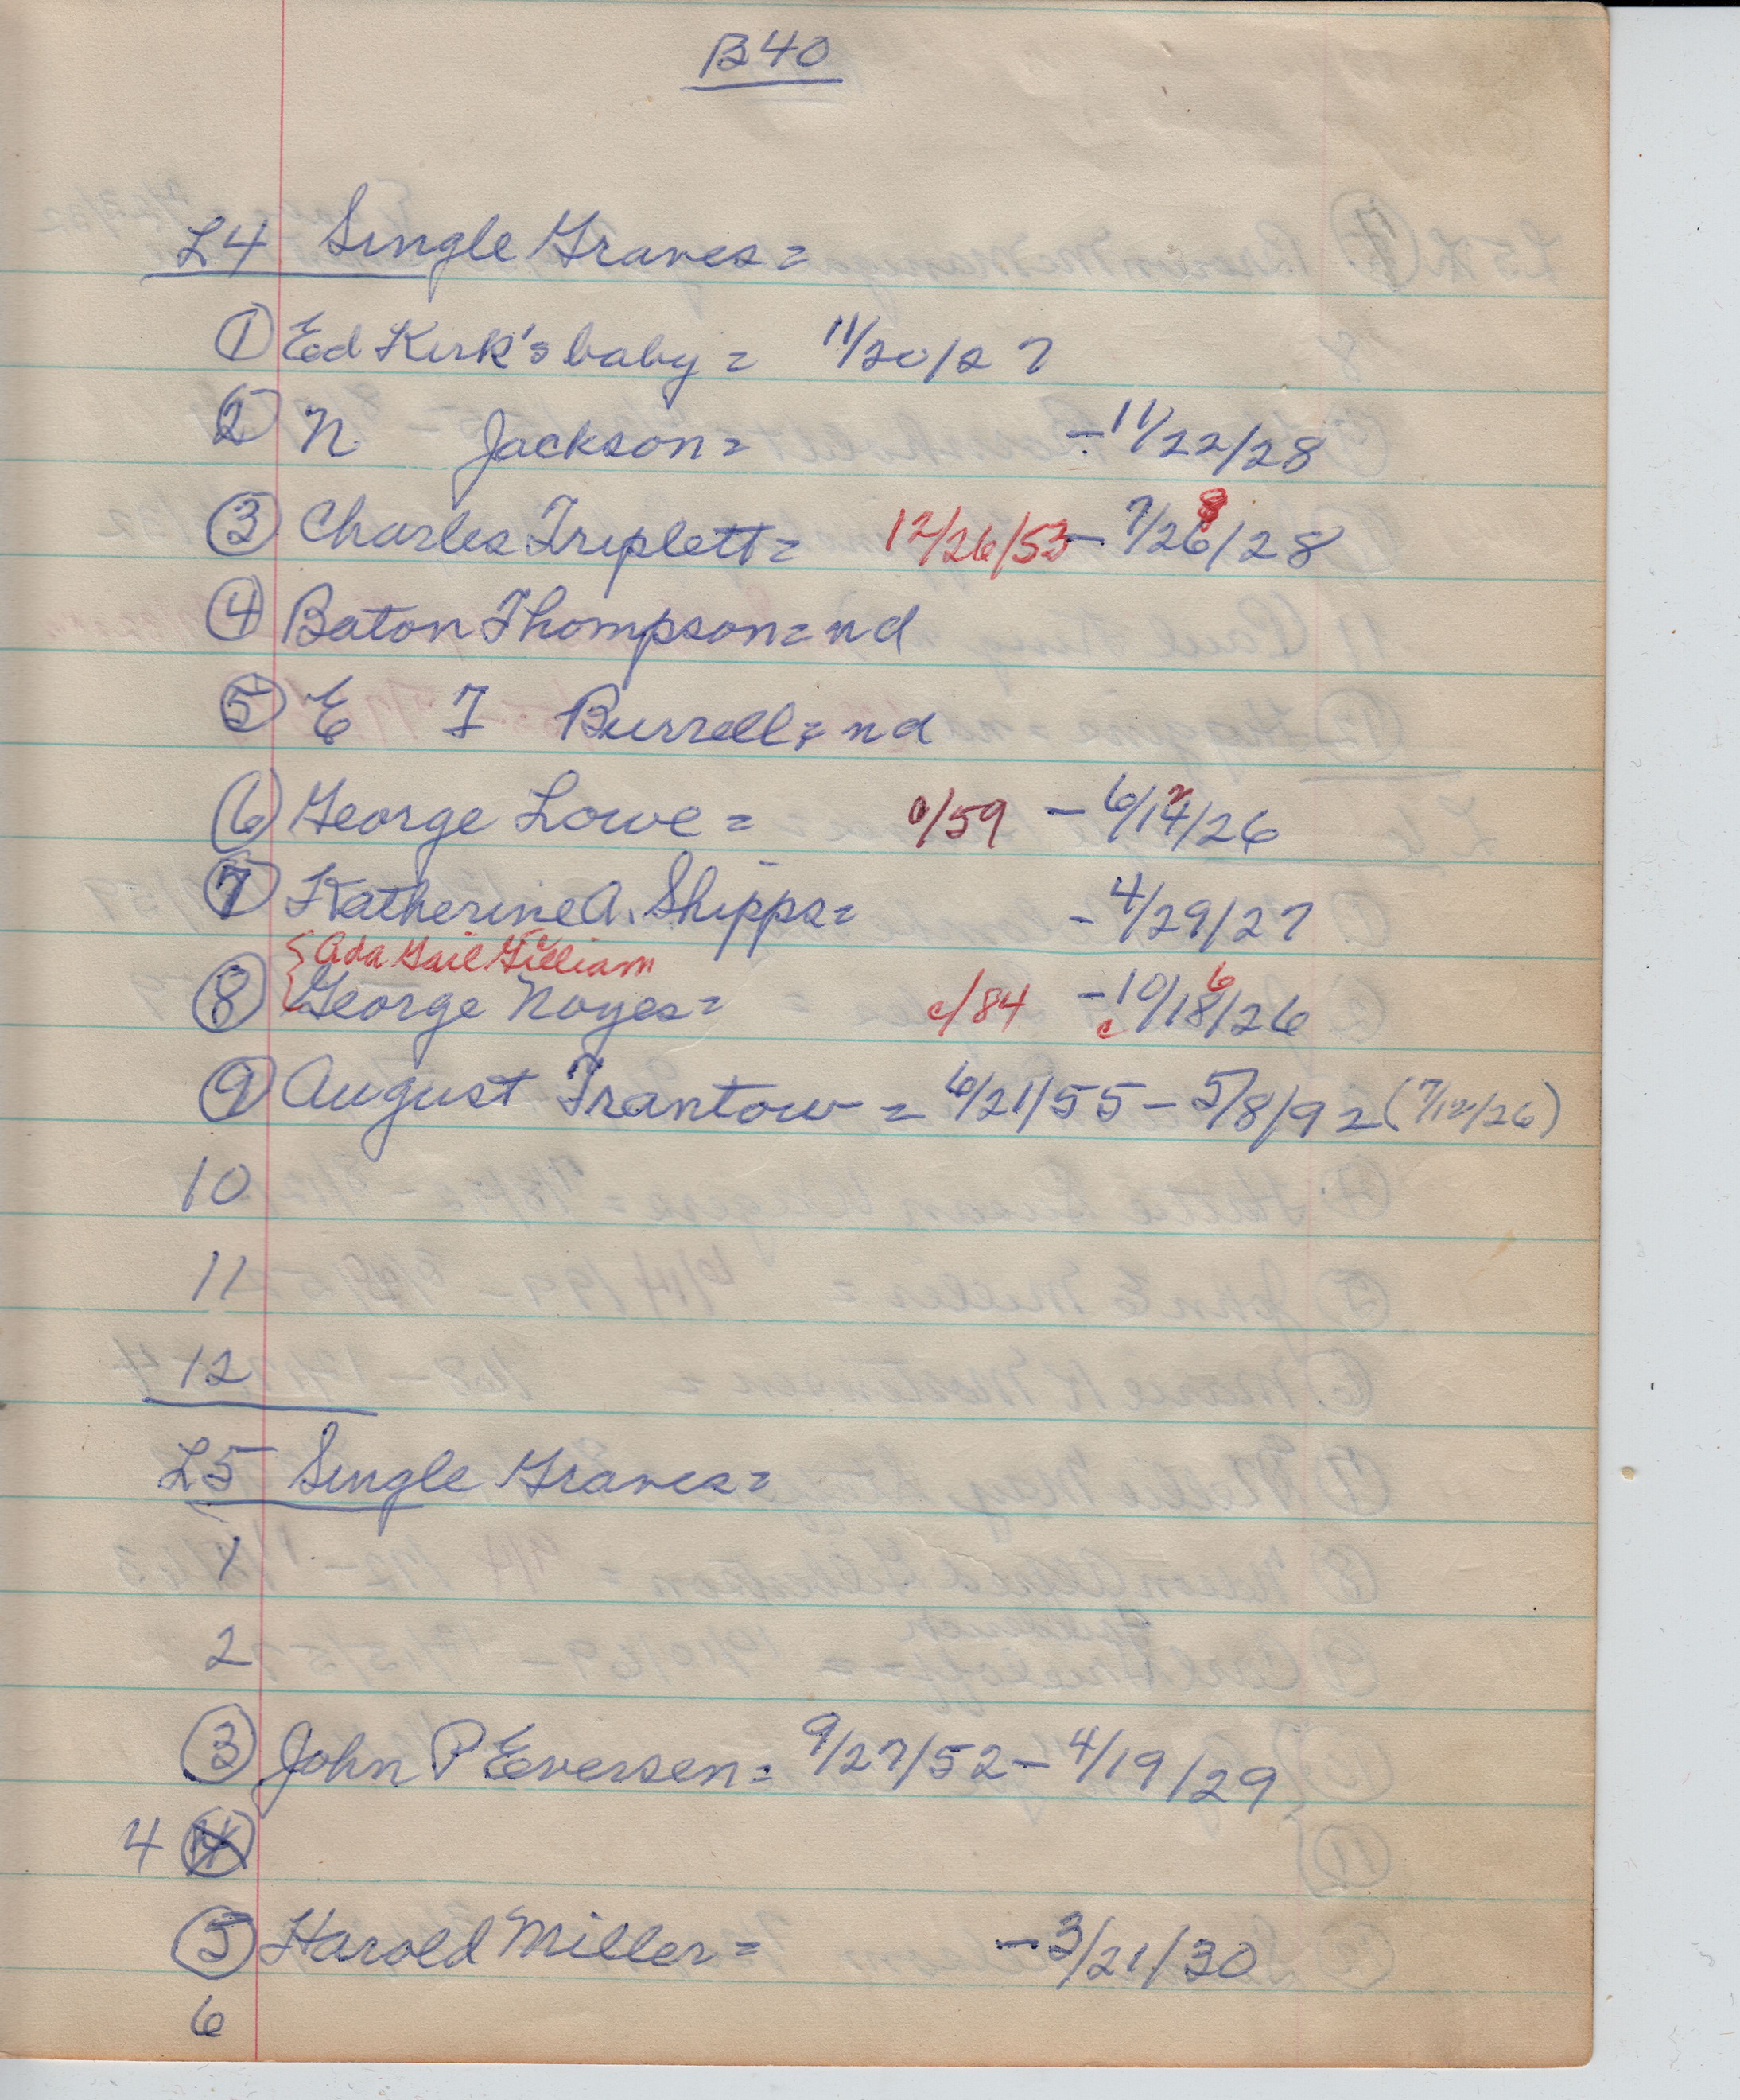 B40
L4 Single Graves=
① Ed Kirk's baby = 11/20/27
② N Jackson= -11/22/28
③ Charles Triplett= 12/26/53 - 7/26/28 8
④ Baton Thompson=nd
⑤ E T Burrell=nd
⑥ George Lowe = 0/59 - 6/14/26
⑦ Katherine A. Shipps= -4/29/27
{Ada Gail Gilliam
⑧ George Noyes= c/84 -c10/18/26 6
⑨ August Trantow = 6/21/55 - 5/8/92 (7/12/26)
10
11
12
L5 Single Graves=
1
2
③ John P Eversen= 9/27/52 - 4/19/29
4 ④
⑤ Harold Miller = -3/21/30
6